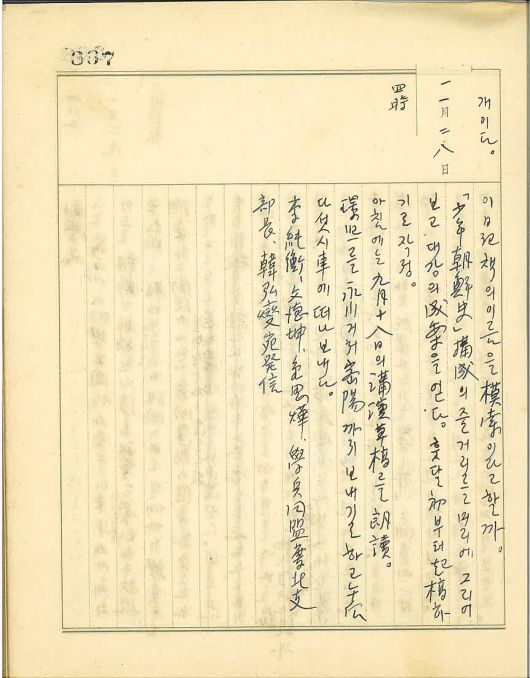 337
개이다。
一一月二八日
四時
이 日記 책의 이름을 模索이라고 할까。
「少年朝鮮史」 構成의 줄거리를 머리에 그리어
보고 대강의 成案을 얻다。훗달 初부터 起稿하
기로 작정。
아침에는 九月十八日의 講演草稿를 朗讀。
永川거쳐 密陽까지 보내기로 하고
다섯시車에 떠나보내다。
李純衡、文德坤、學兵同盟慶北支
部長、韓弘燮宛發信